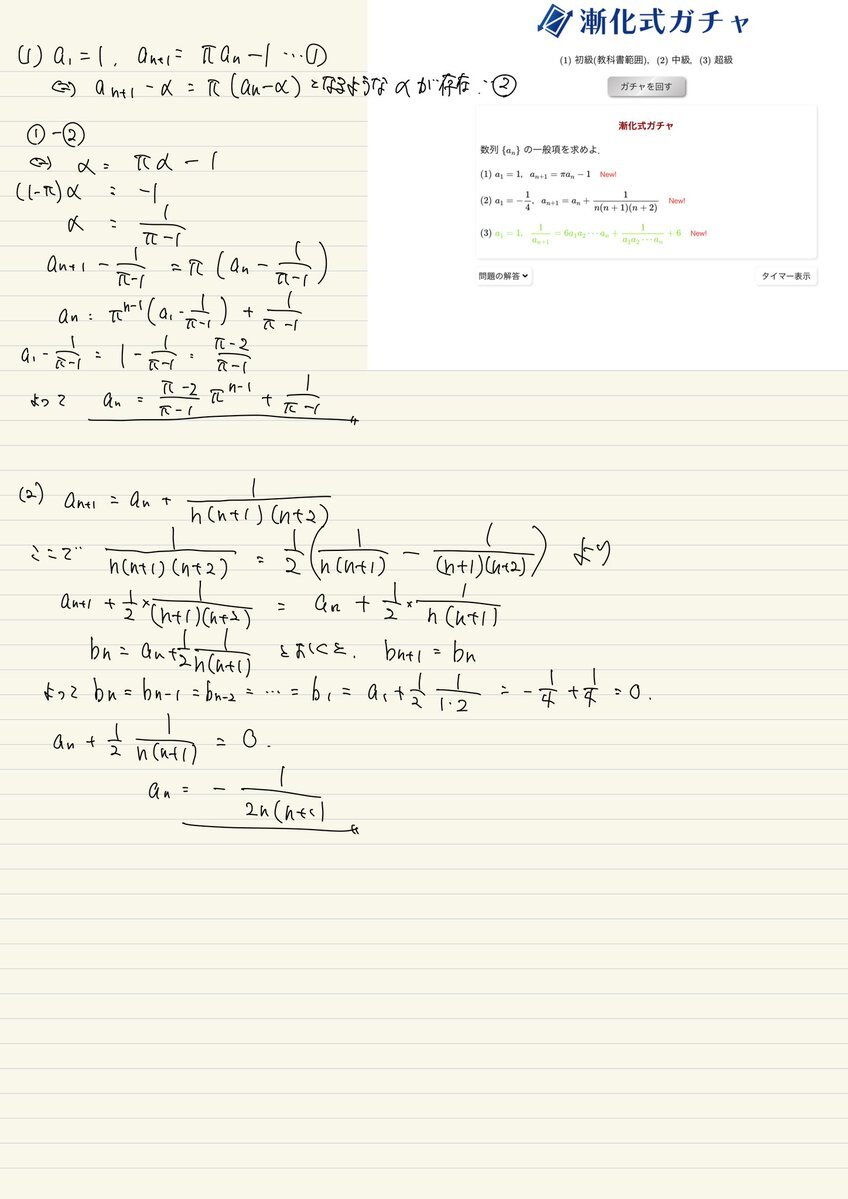 漸化式ガチャ
(1) 初級(教科書範囲), (2) 中級, (3) 超級
ガチャを回す
漸化式ガチャ
数列 {aₙ} の一般項を求めよ.
(1) a₁ = 1, aₙ₊₁ = πaₙ − 1 New!
(2) a₁ = −1/4, aₙ₊₁ = aₙ + 1/(n(n+1)(n+2)) New!
(3) a₁ = 1, 1/aₙ₊₁ = 6a₁a₂⋯aₙ + 1/(a₁a₂⋯aₙ) + 6 New!
問題の解答
タイマー表示
(1) a₁ = 1, aₙ₊₁ = πaₙ − 1 … ①
⇔ aₙ₊₁ − α = π(aₙ − α) となるような α が存在 … ②
① − ②
⇔ α = πα − 1
(1−π)α = −1
α = 1/(π−1)
aₙ₊₁ − 1/(π−1) = π(aₙ − 1/(π−1))
aₙ = πⁿ⁻¹(a₁ − 1/(π−1)) + 1/(π−1)
a₁ − 1/(π−1) = 1 − 1/(π−1) = (π−2)/(π−1)
よって aₙ = (π−2)/(π−1) πⁿ⁻¹ + 1/(π−1)
(2) aₙ₊₁ = aₙ + 1/(n(n+1)(n+2))
ここで 1/(n(n+1)(n+2)) = 1/2 (1/(n(n+1)) − 1/((n+1)(n+2))) より
aₙ₊₁ + 1/2 × 1/((n+1)(n+2)) = aₙ + 1/2 × 1/(n(n+1))
bₙ = aₙ + 1/2 1/(n(n+1)) とおくと、 bₙ₊₁ = bₙ
よって bₙ = bₙ₋₁ = bₙ₋₂ = … = b₁ = a₁ + 1/2 1/(1·2) = −1/4 + 1/4 = 0.
aₙ + 1/2 1/(n(n+1)) = 0.
aₙ = − 1/(2n(n+1)